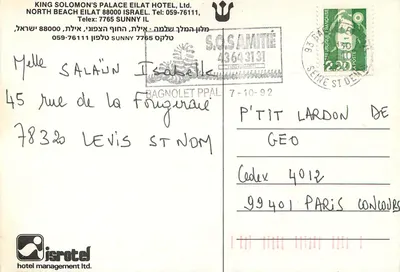 KING SOLOMON'S PALACE EILAT HOTEL, Ltd.
NORTH BEACH EILAT 88000 ISRAEL. Tel: 059-76111,
Telex: 7765 SUNNY IL
מלון המלך שלמה - אילת, החוף הצפוני, אילת, 88000 ישראל,
טלקס SUNNY 7765 טלפון 059-76111
Melle SALAÜN Isabelle
45 rue de la Fougeraie
78320 LEVIS ST NOM
S.O.S AMITIÉ
43 64 31 31
BAGNOLET PPAL 7-10-92
93
SEINE ST DENIS
2,20
P'TIT LARDON DE
GEO
Cedex 4012
99401 PARIS CONCOURS
isrotel
hotel management ltd.